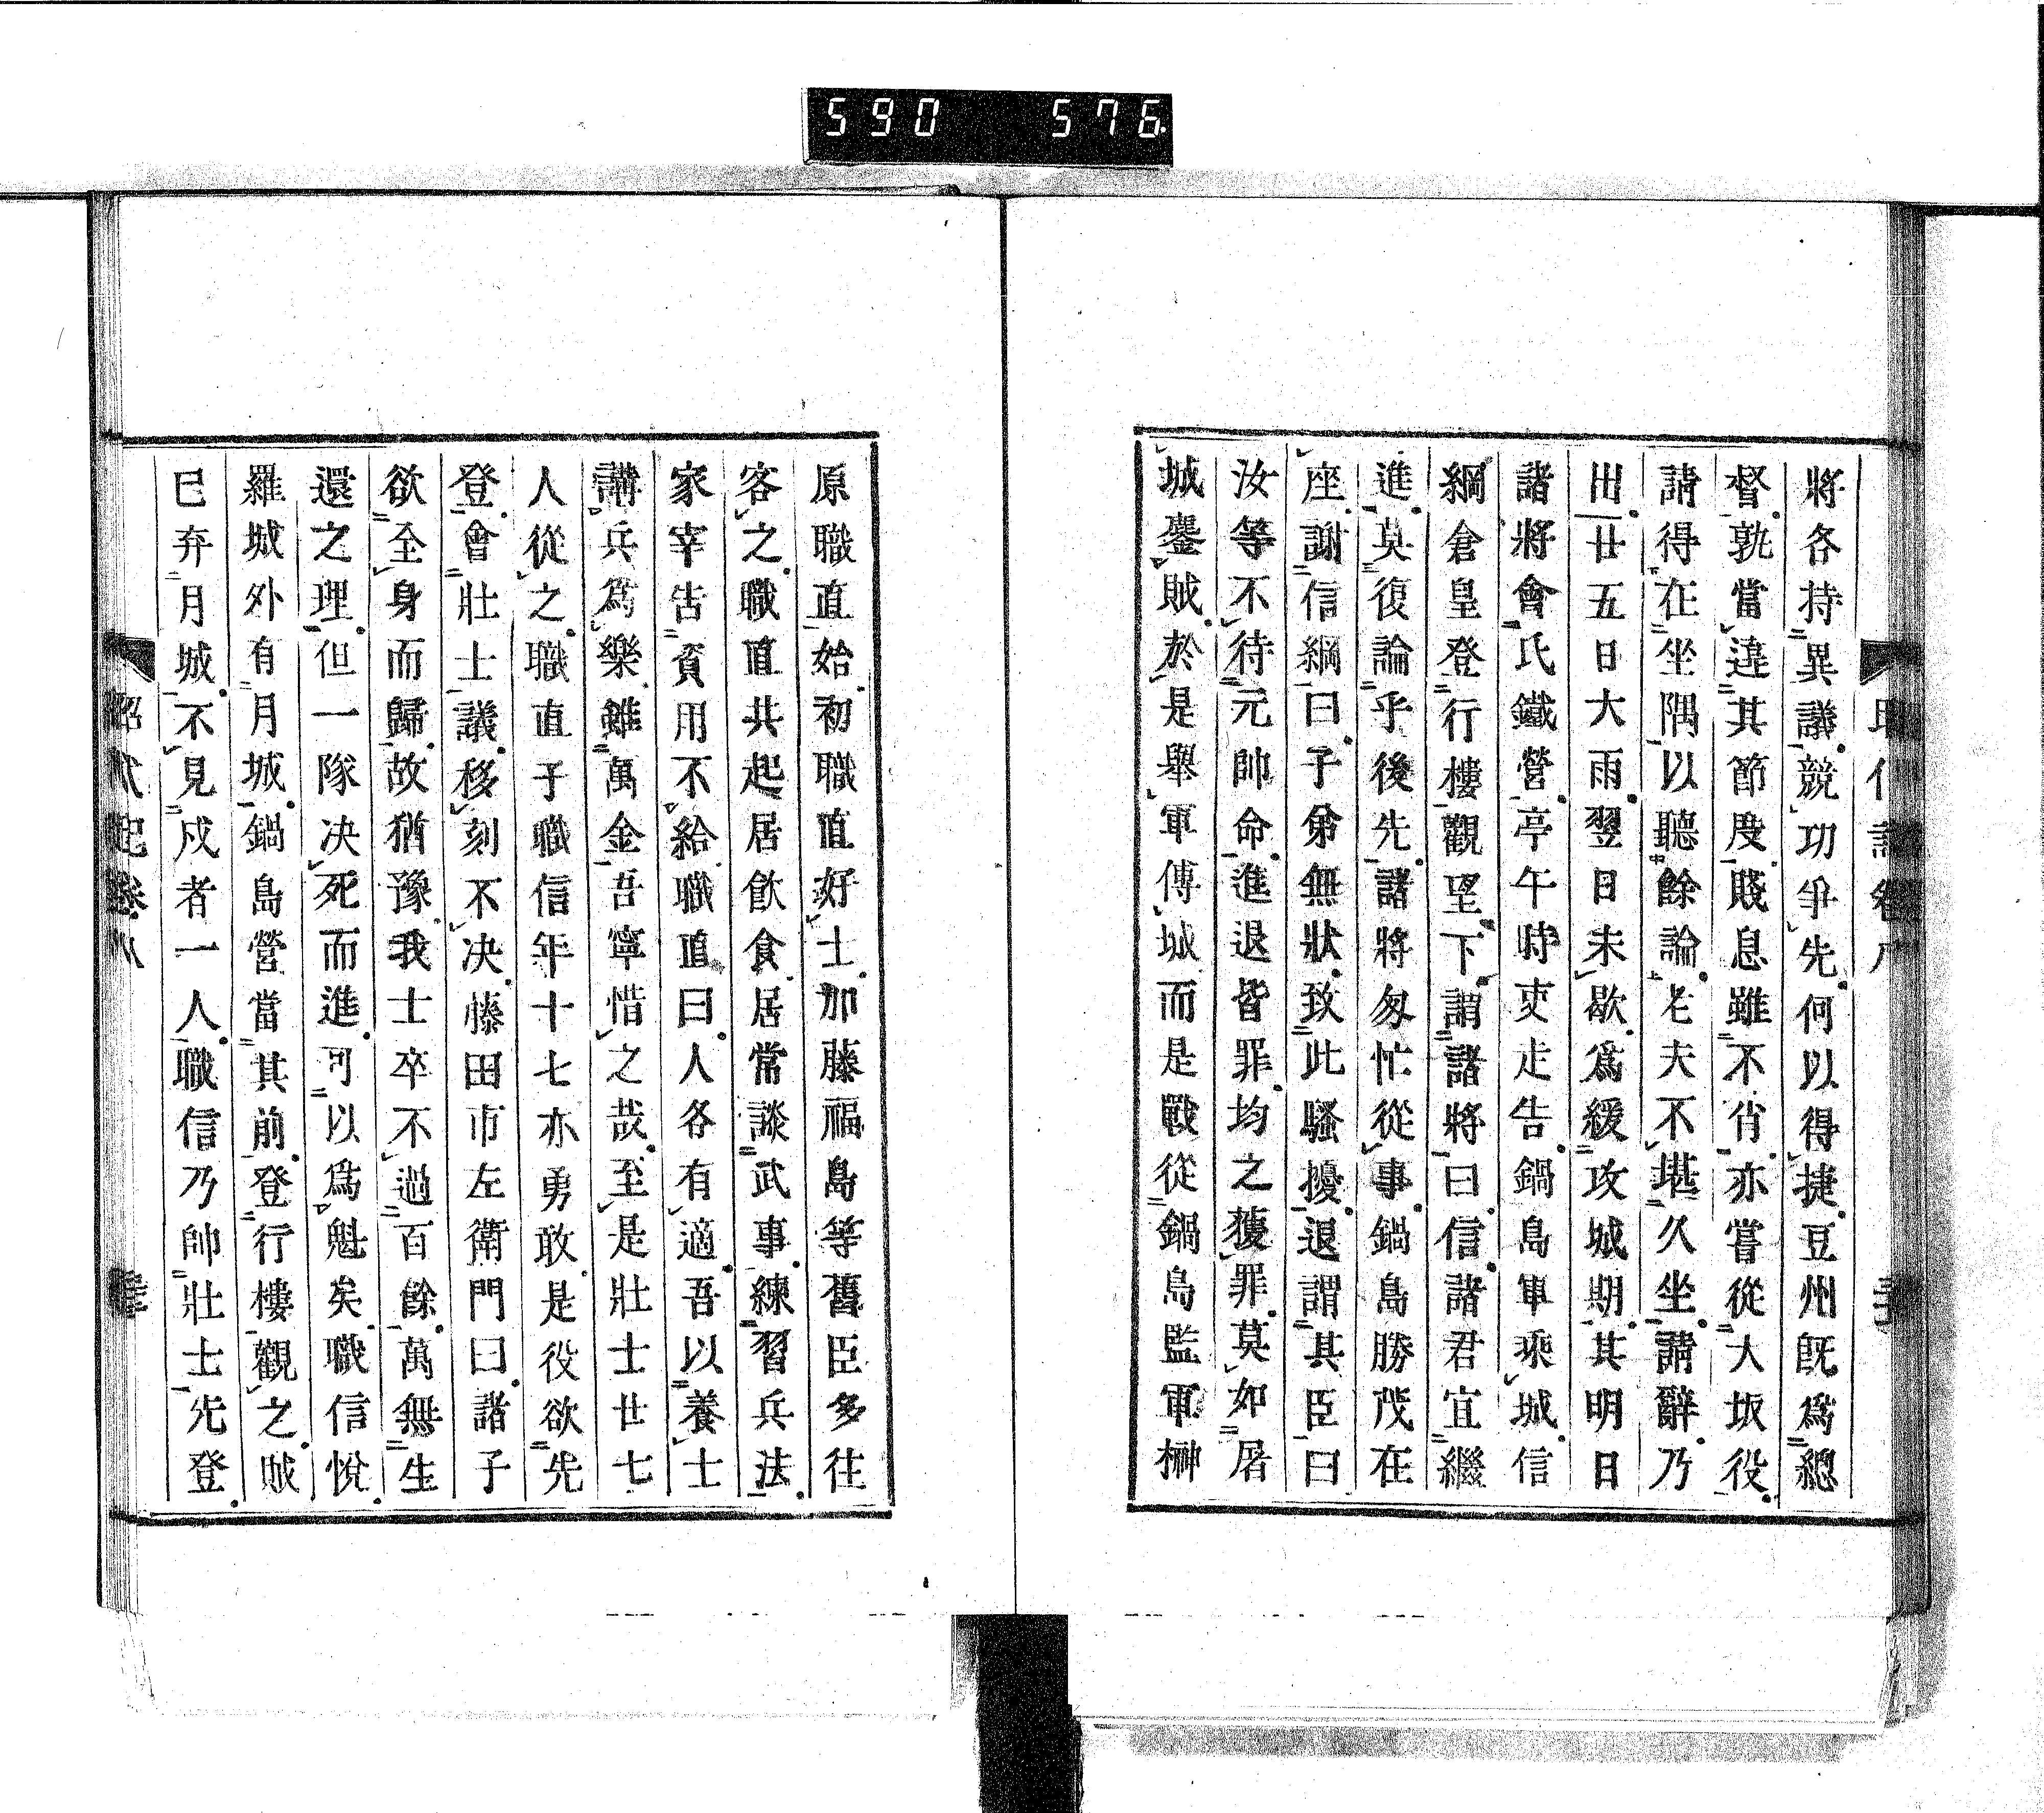 590 576
將各持異議競功爭先何以得捷豆州既爲總
督孰當違其節度賤息雖不肖亦嘗從大坂役
請得在坐隅以聽餘論老夫不堪久坐請辭乃
出廿五日大雨翌日未歇爲緩攻城期其明日
諸將會氏鐵營亭午時吏走告鍋島軍乘城信
綱倉皇登行樓觀望下謂諸將曰信諸君宜繼
進莫復論乎後先諸將匆忙從事鍋島勝茂在
座謝信綱曰子弟無狀致此騷擾退謂其臣曰
汝等不待元帥命進退皆罪均之獲罪莫如屠
城鏖賊於是舉軍傳城而是戰從鍋島監軍榊
原職直始初職直好士加藤福島等舊臣多往
客之職直共起居飮食居常談武事練習兵法
家宰告資用不給職直曰人各有適吾以養士
講兵爲樂雖萬金吾寧惜之哉至是壯士世七
人從之職直子職信年十七亦勇敢是役欲先
登會壯士議移刻不决藤田市左衛門曰諸子
欲全身而歸故猶豫我士卒不過百餘萬無生
還之理但一隊决死而進可以爲魁矣職信悅
羅城外有月城鍋島營當其前登行樓觀之賊
已弃月城不見戍者一人職信乃帥壯士先登
昭代記卷八